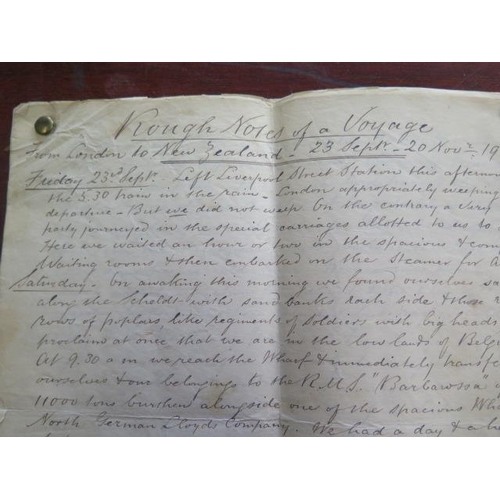 Rough Notes of a Voyage
From London to New Zealand - 23 Septr. - 20 Novr. 19
Friday 23rd Septr. Left Liverpool Street Station this afternoon
the 5.30 train in the rain - London appropriately weeping
departure - But we did not weep on the contrary a very
party journeyed in the special carriages allotted to us to
Here we waited an hour or two in the spacious & com
Waiting rooms & then embarked on the Steamer for A
Saturday. On awaking this morning we found ourselves
along the Scheldt with sand banks each side & those
rows of poplars like regiments of soldiers with big heads
proclaim at once that we are in the low lands of Belg
At 9.30 a m we reach the Wharf & immediately transfe
ourselves & our belongings to the R.M.S. "Barbarossa"
11000 tons burthen alongside one of the spacious Wh
North German Lloyds Company. We had a day & a h